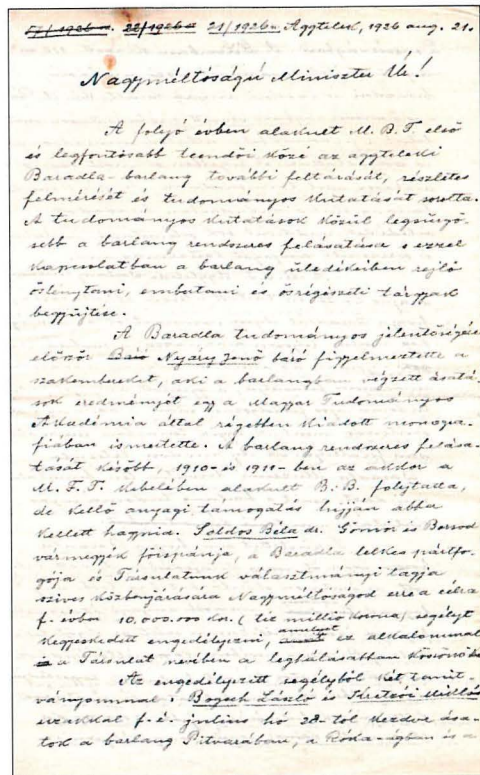 22/1926 21/1926 Aggtelek, 1926 aug. 21.
Nagyméltóságú Miniszter Úr!
A folyó évben alakult M. B. T. első
és legfontosabb teendői közé az aggteleki
Baradla-barlang további feltárását, részletes
felmérését és tudományos kutatását sorolta.
A tudományos kutatások közül legsürgő-
sebb a barlang rendszeres felásatása s ezzel
kapcsolatban a barlang üledékeiben rejlő
őslénytani, embertani és ősrégészeti tárgyak
begyüjtése.
A Baradla tudományos jelentőségére
először Báró Nyáry Jenő báró figyelmeztette a
szakembereket, aki a barlangban végzett ásatá-
sok eredményét egy a Magyar Tudományos
Akadémia által régebben kiadott monogra-
fiában ismertette. A barlang rendszeres felása-
tását később, 1910- és 1911-ben az akkor a
M. F. T. kebelében alakult B. B. folytatta,
de kellő anyagi támogatás híjján abba
kellett hagynia. Soldos Béla dr. Gömör és Borsod
vármegyék főispánja, a Baradla lelkes pártfo-
gója és Társulatunk választmányi tagja
szives közbenjárására Nagyméltóságod erre a célra
f. évben 10,000.000 Kor. (tiz millió korona) segélyt
kegyeskedett engedélyezni, amelyért ez alkalommal
is a Társulat nevében a leghálásabban
Az engedélyezett segélyből két tanit-
ványommal: Bogsch László és Kretzói Miklós
urakkal f. é. julius hó 28-tól kezdve ása-
tok a barlang Pitvarában, a Róka-ágban és a